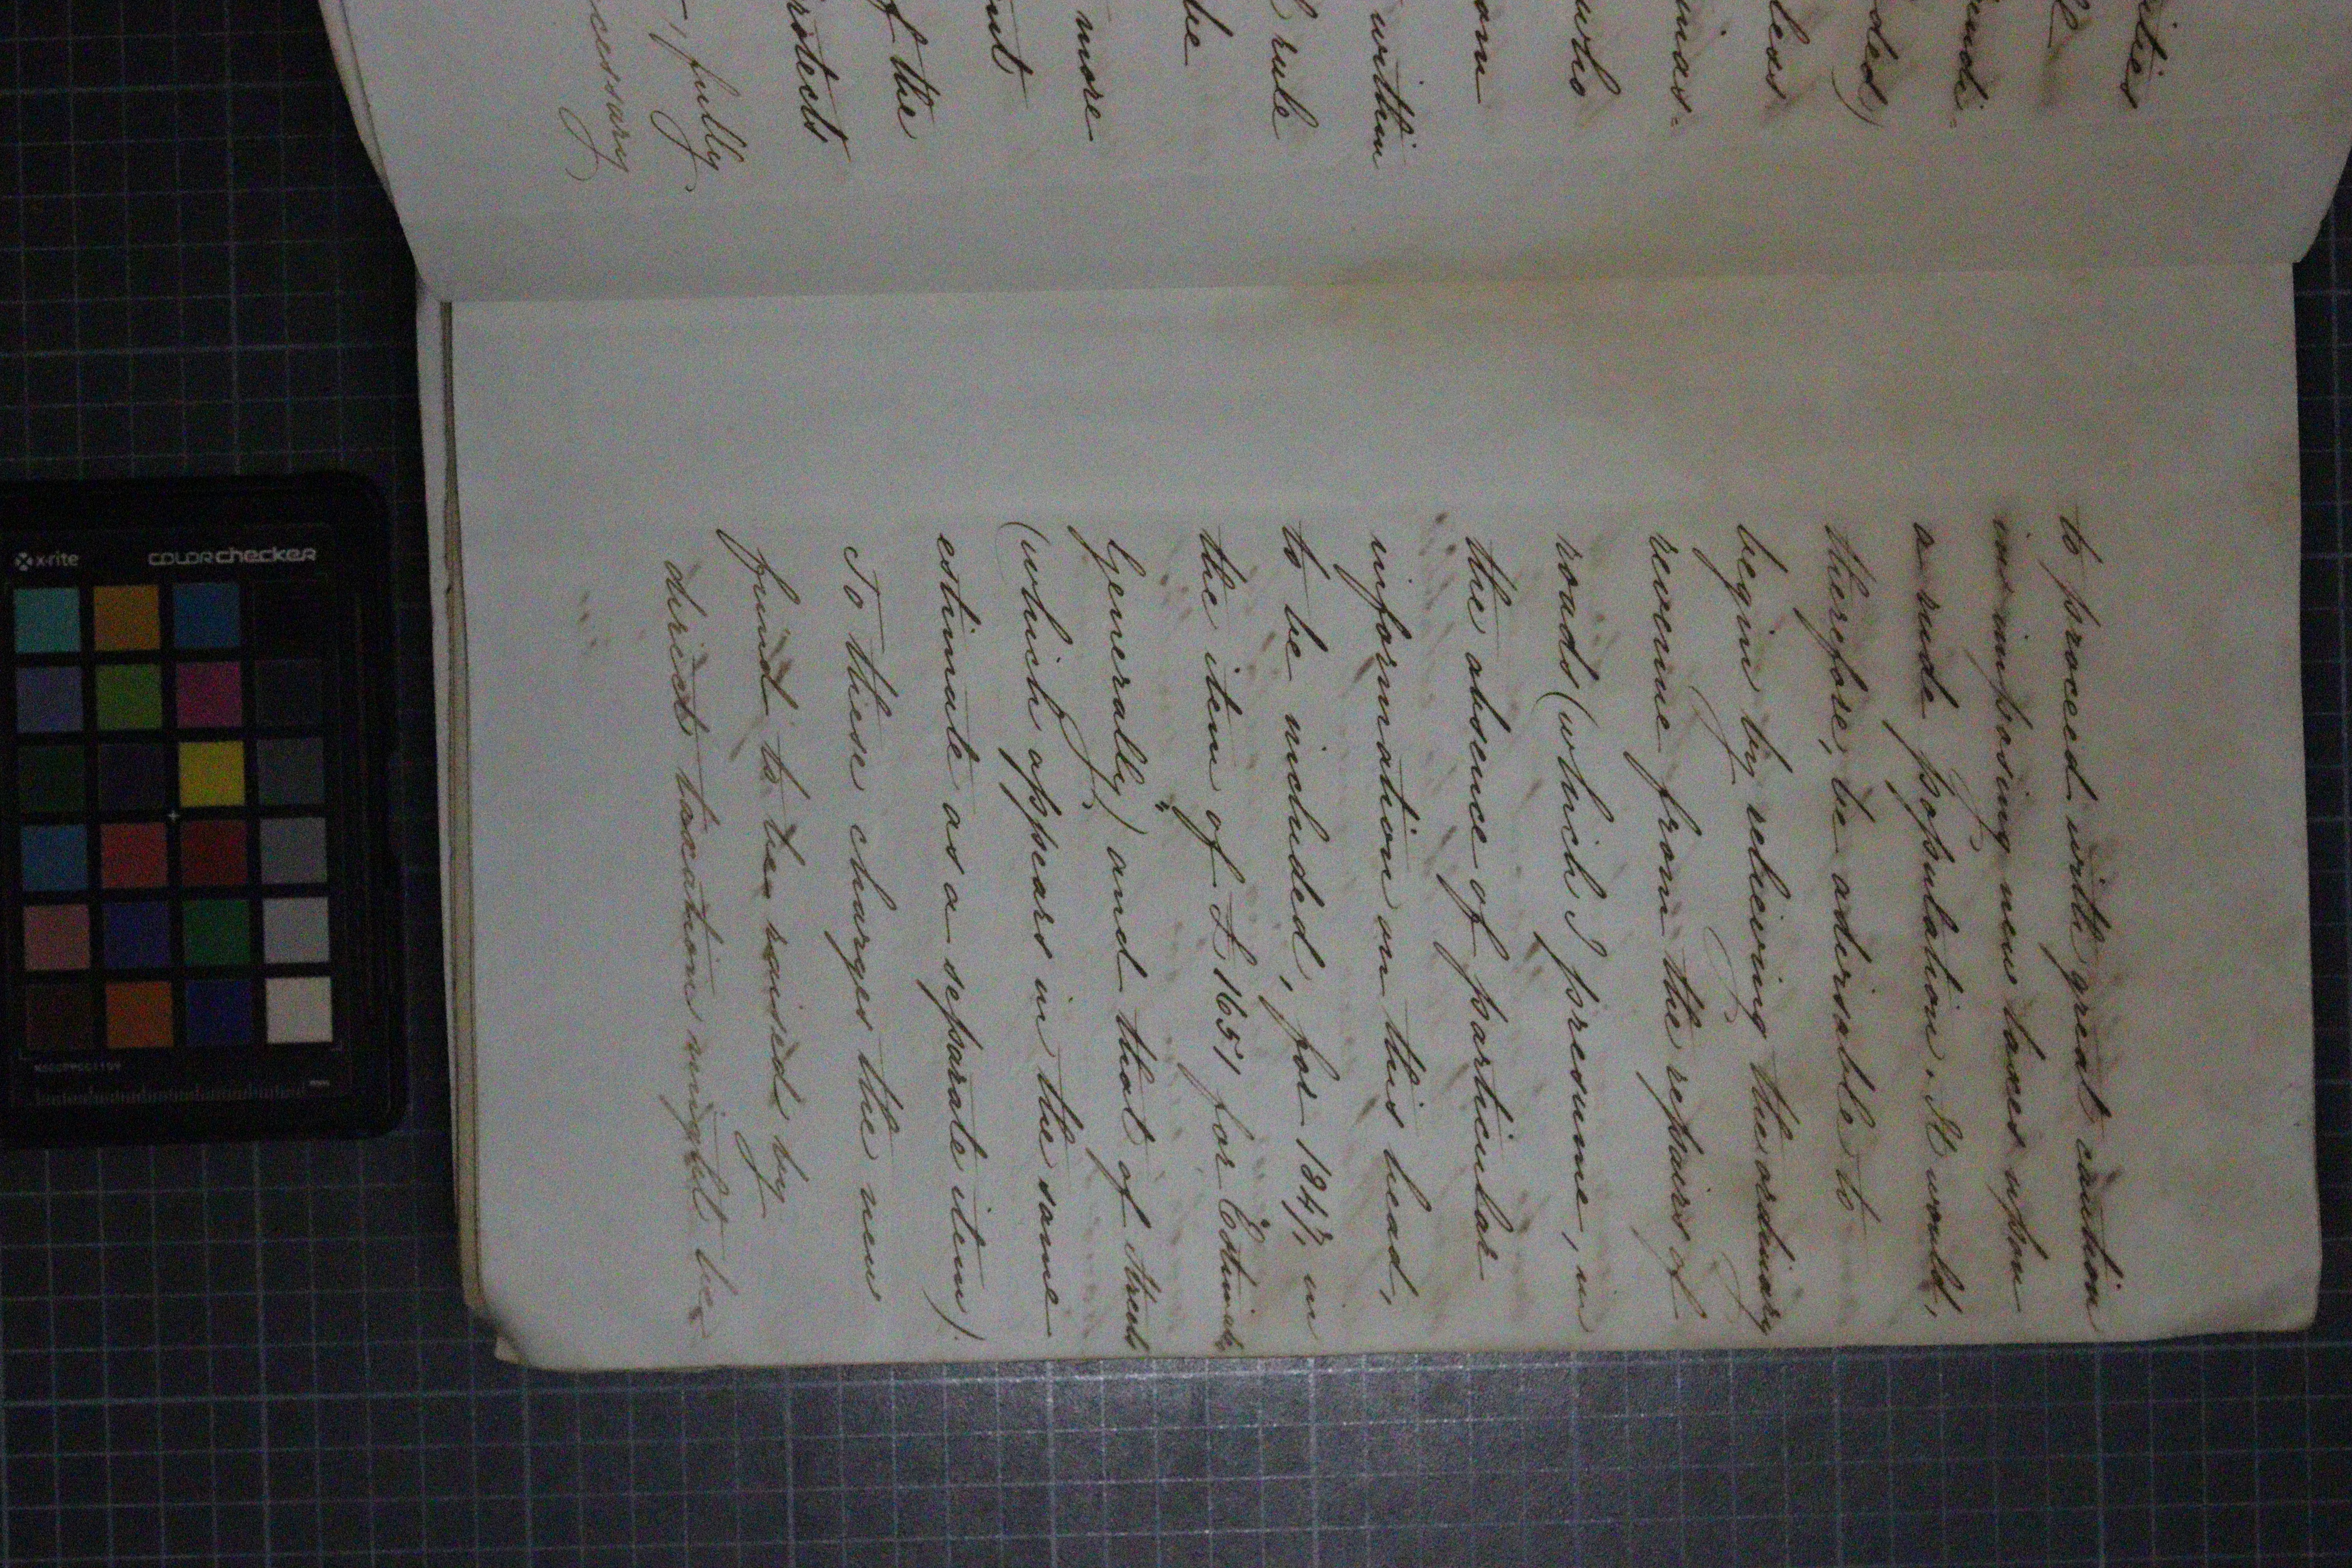 ities
undi-
ded)
less
inas-
who
om
within
rule
be
more
nt
f the
rotects
fully
cessary
to proceed with great caution
in imposing new taxes upon
a rude population. It would,
therefore, be advisable to
begin by relieving the ordinary
revenue from the repairs of
roads (which I presume, in
the absence of particular
information on this head,
to be included, for 1847, in
the item of £1651 for "Estimate
Generally) and that of Streets
(which appears in the same
estimate as a separate item).
To these charges the new
fund to be raised by
direct taxation might be
x-rite
colorchecker
mm